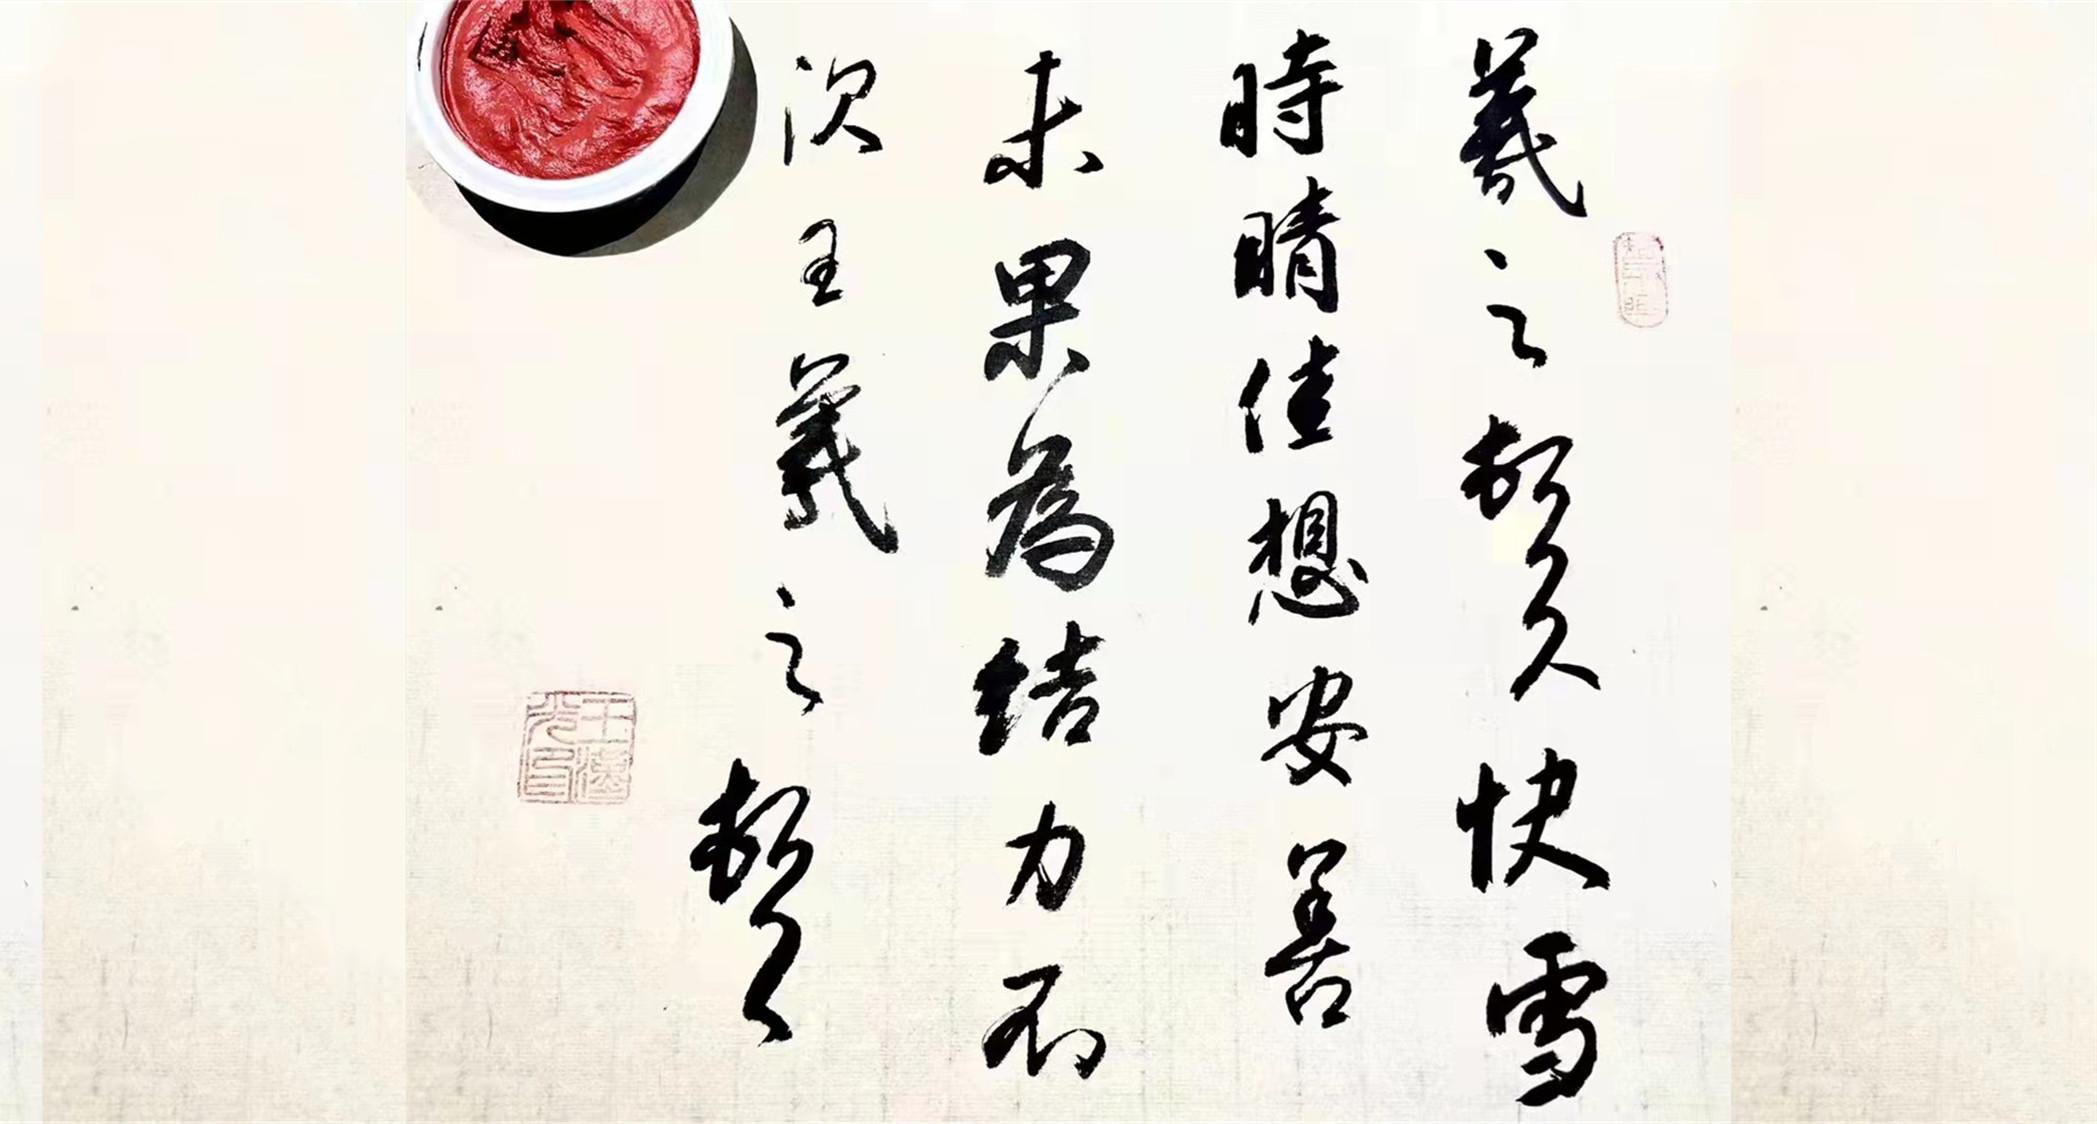 羲之頓首快雪
時晴佳想安善
未果為結力不
次王羲之頓首
王漢光印